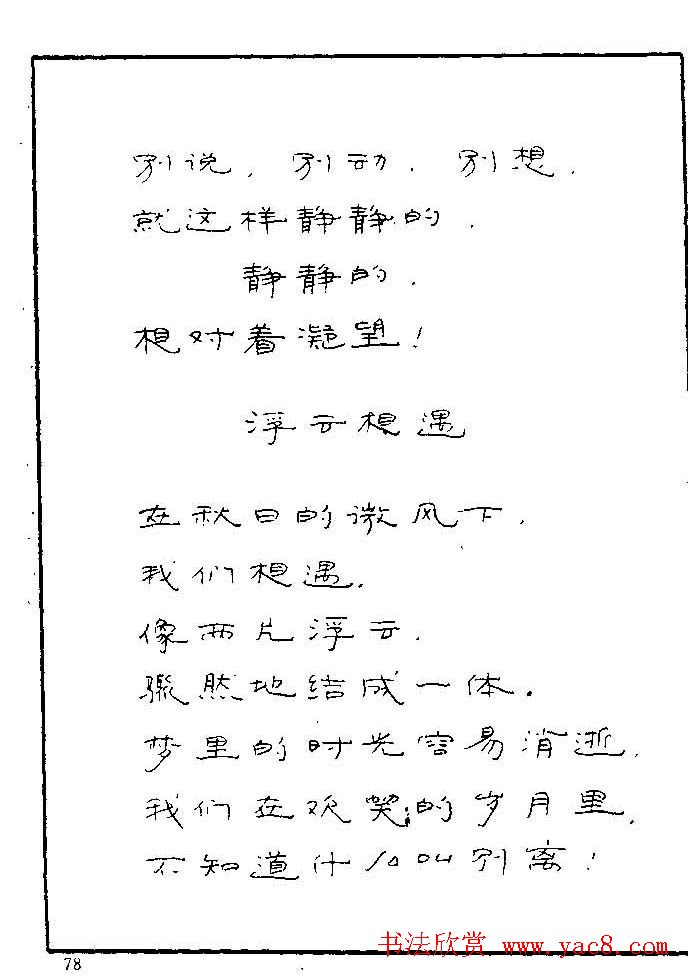 别说，别动，别想，
就这样静静的，
静静的，
想对着凝望！
浮云想遇
在秋日的微风下，
我们想遇，
像两片浮云，
骤然地结成一体．
梦里的时光容易消逝，
我们在欢笑的岁月里，
不知道什么叫别离！
78
书法欣赏 www.yac8.com